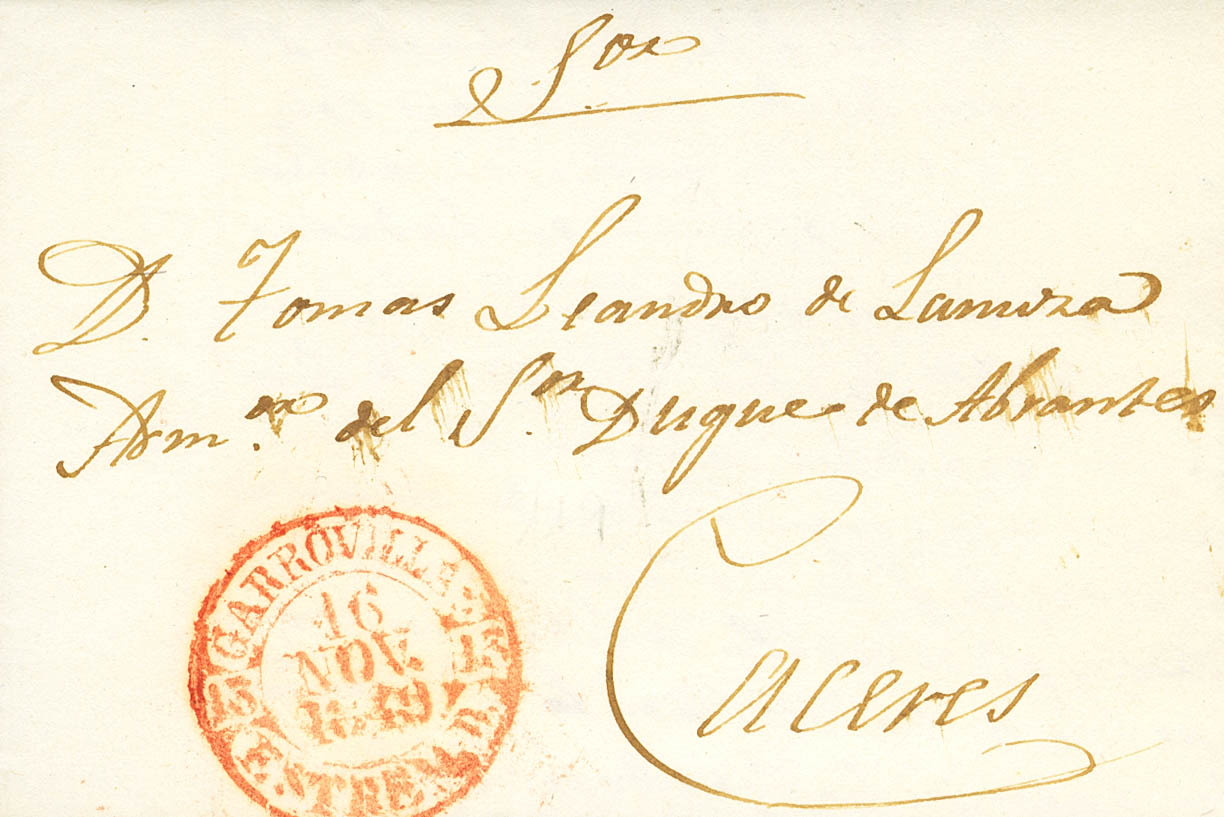 Sor
D. Tomas Leandro de
Adm.or del S.or Duque de Abrantes
Caceres
GARROVILLAS
16
NOV.
1849
ESTREMAD